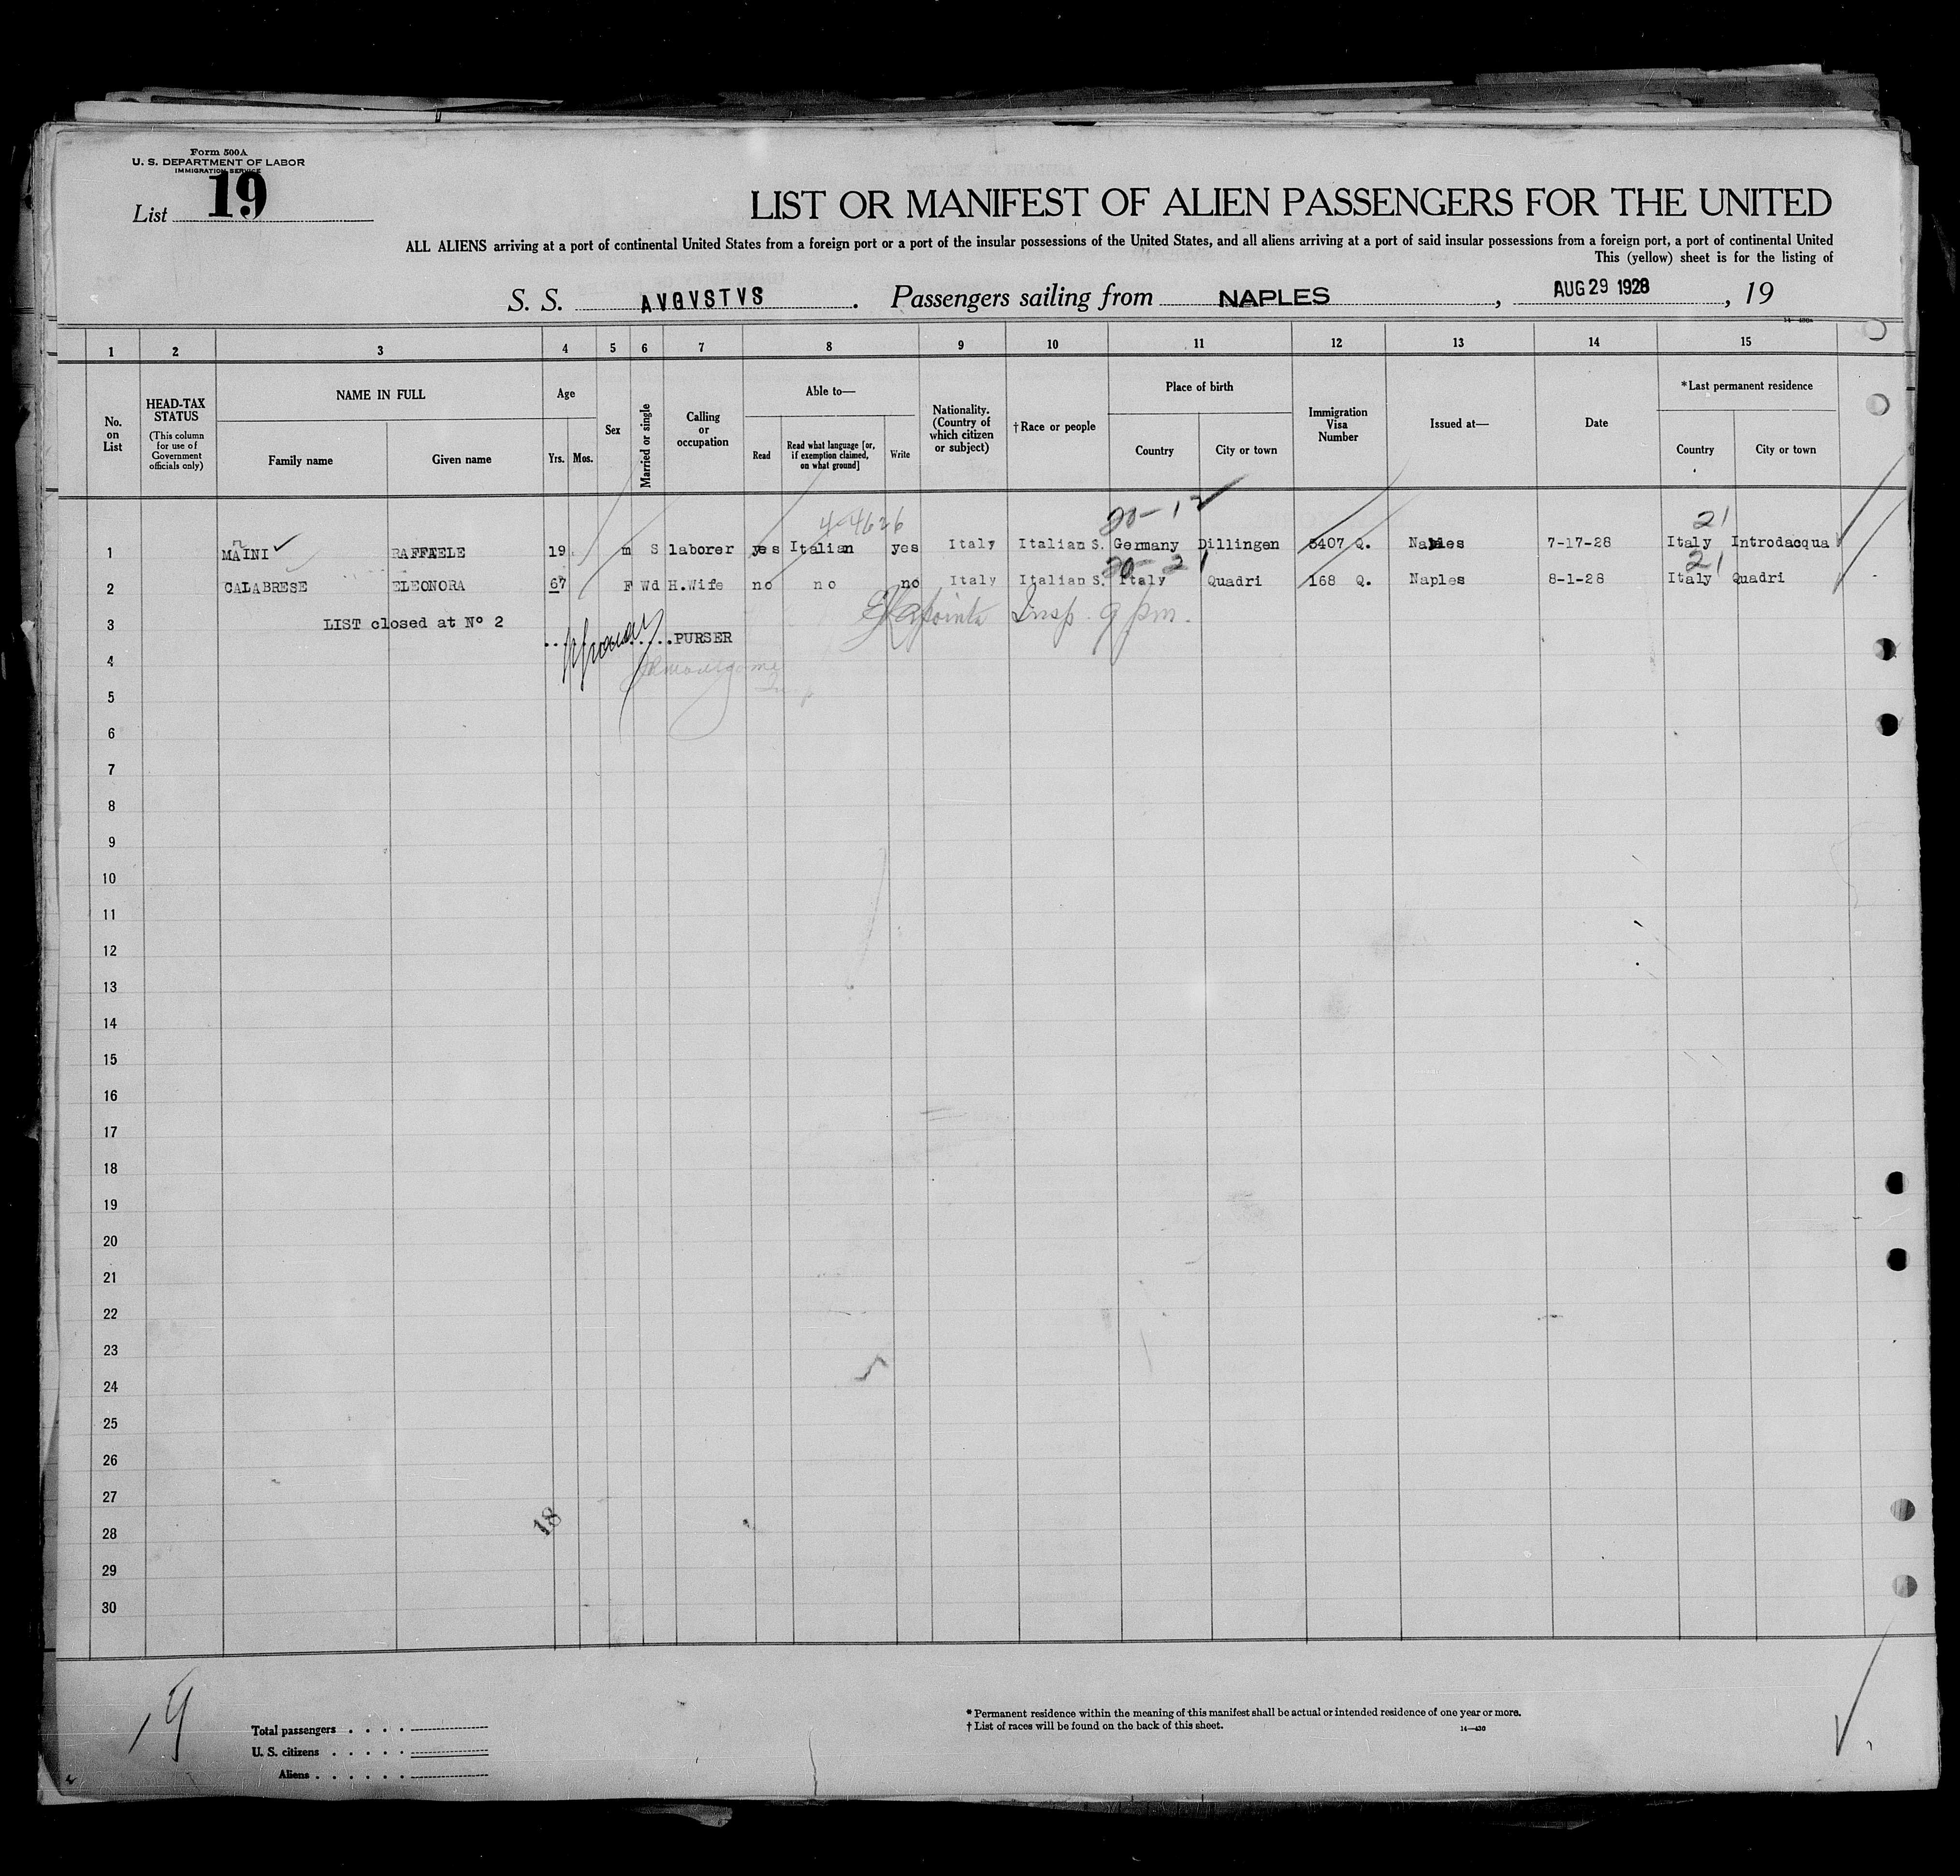 Form 500A
U. S. DEPARTMENT OF LABOR
IMMIGRATION SERVICE
List 19
LIST OR MANIFEST OF ALIEN PASSENGERS FOR THE UNITED
ALL ALIENS arriving at a port of continental United States from a foreign port or a port of the insular possessions of the United States, and all aliens arriving at a port of said insular possessions from a foreign port, a port of continental United
This (yellow) sheet is for the listing of
S. S. AVGVSTVS. Passengers sailing from NAPLES, AUG 29 1928, 19
1 2 3 4 5 6 7 8 9 10 11 12 13 14 15
No. on List
HEAD-TAX STATUS
(This column for use of Government officials only)
NAME IN FULL
Family name Given name
Age
Yrs. Mos.
Sex
Married or single
Calling or occupation
Able to—
Read
Read what language [or, if exemption claimed, on what ground]
Write
Nationality. (Country of which citizen or subject)
†Race or people
Place of birth
Country City or town
Immigration Visa Number
Issued at—
Date
*Last permanent residence
Country City or town
4-4626 20-12 21
1 MAINI RAFFAELE 19 m S laborer yes Italian yes Italy Italian S. Germany Dillingen 5407 Q. Naples 7-17-28 Italy Introdacqua
20-21 21
2 CALABRESE ELEONORA 67 F Wd H.Wife no no no Italy Italian S. Italy Quadri 168 Q. Naples 8-1-28 Italy Quadri
3 LIST closed at Nº 2 PURSER Insp. 9 pm.
4
5
6
7
8
9
10
11
12
13
14
15
16
17
18
19
20
21
22
23
24
25
26
27
28
29
30
18
19
Total passengers
U. S. citizens
Aliens
* Permanent residence within the meaning of this manifest shall be actual or intended residence of one year or more.
† List of races will be found on the back of this sheet.
14—430